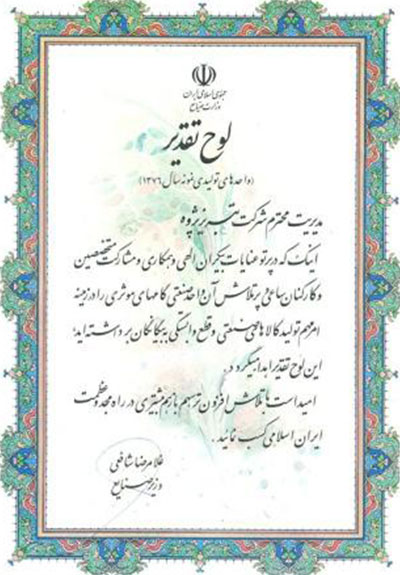 جمهوری اسلامی ایران
وزارت صنایع
لوح تقدیر
(واحدهای تولیدی نمونه سال ۱۳۷۶)
مدیریت محترم شرکت تبریز پژوه
اینک که در پرتو عنایات بیکران الهی و همکاری و مشارکت متخصصین
و کارکنان ساعی و پرتلاش آن واحد صنعتی گامهای موثری را در زمینه
امر مهم تولید کالاهای صنعتی و قطع وابستگی به بیگانگان برداشته اید؛
این لوح تقدیر اهدا میگردد.
امید است با تلاش افزون ترسهم بازهم بیشتری در راه مجد و عظمت
ایران اسلامی کسب نمائید.
غلامرضا شافعی
وزیر صنایع